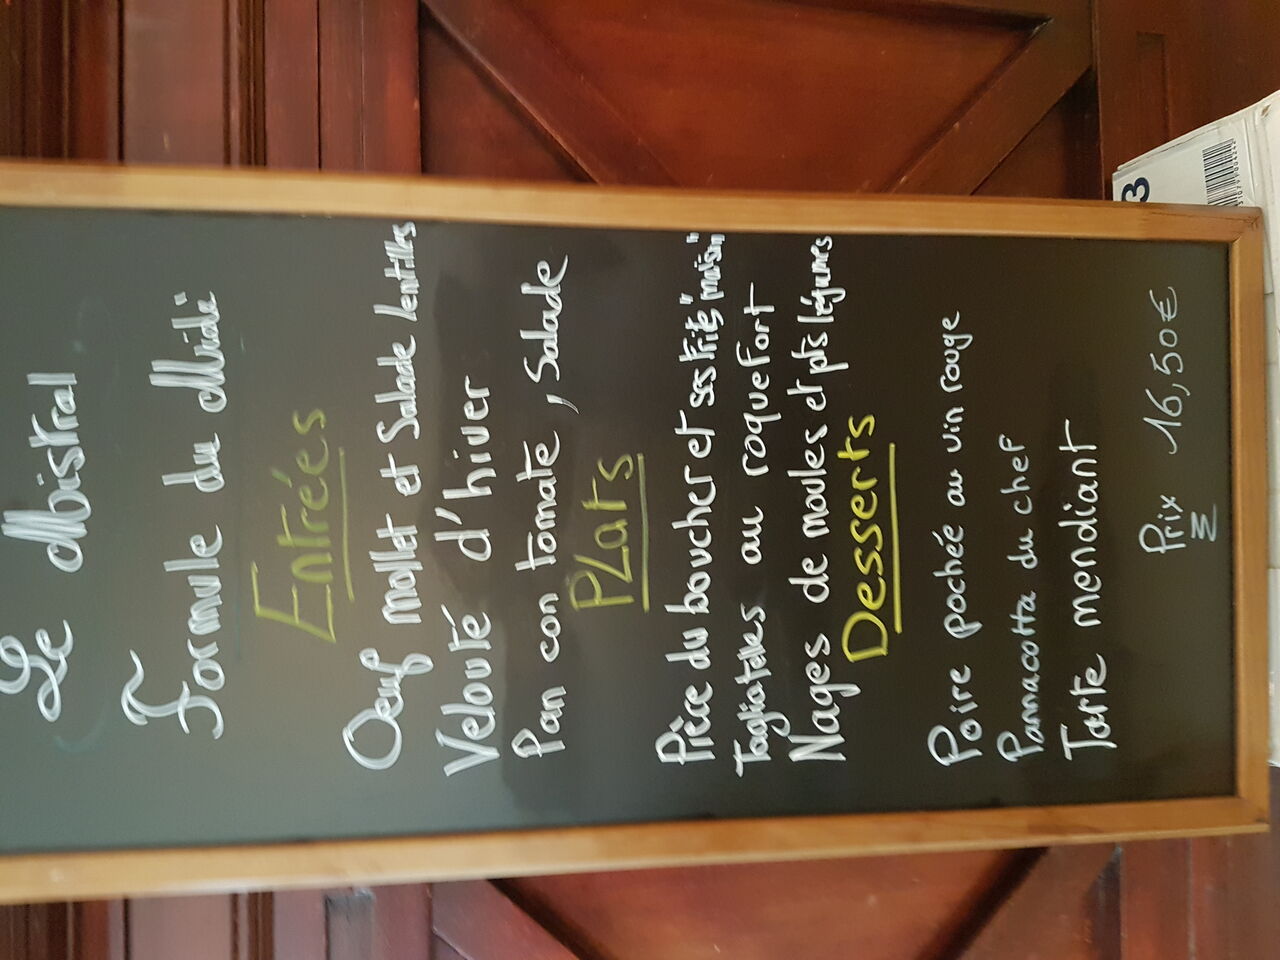 Le Mistral
Formule du Midi
Entrés
Oeuf mollet et Salade lentilles
Velouté d'hiver
Pan con tomate, Salade
PLats
Pièce du boucher et ses frites "maison"
Tagliatelles au roquefort
Nages de moules et pts légumes
Desserts
Poire pochée au vin rouge
Pannacotta du chef
Tarte mendiant
Prix 16,50€
3